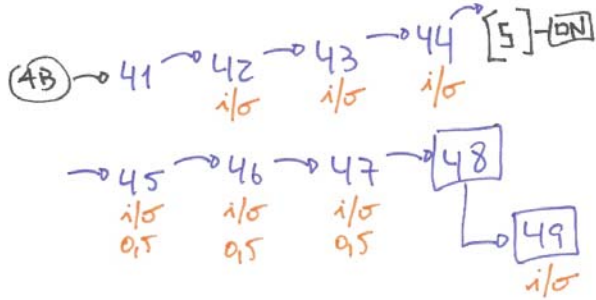 4B → 41 → 42 → 43 → 44 → [5] - ON
i/σ i/σ i/σ
→ 45 → 46 → 47 → 48
i/σ i/σ i/σ
0,5 0,5 0,5
49
i/σ